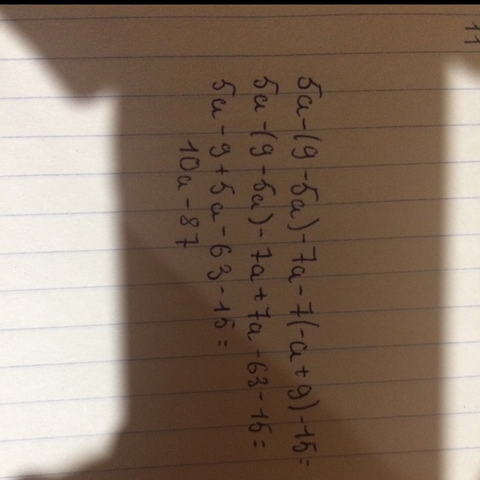 11
5a-(9-5a)-7a-7(-a+9)-15=
5a-(9-5a)-7a+7a-63-15=
5a-9+5a-63-15=
10a-87